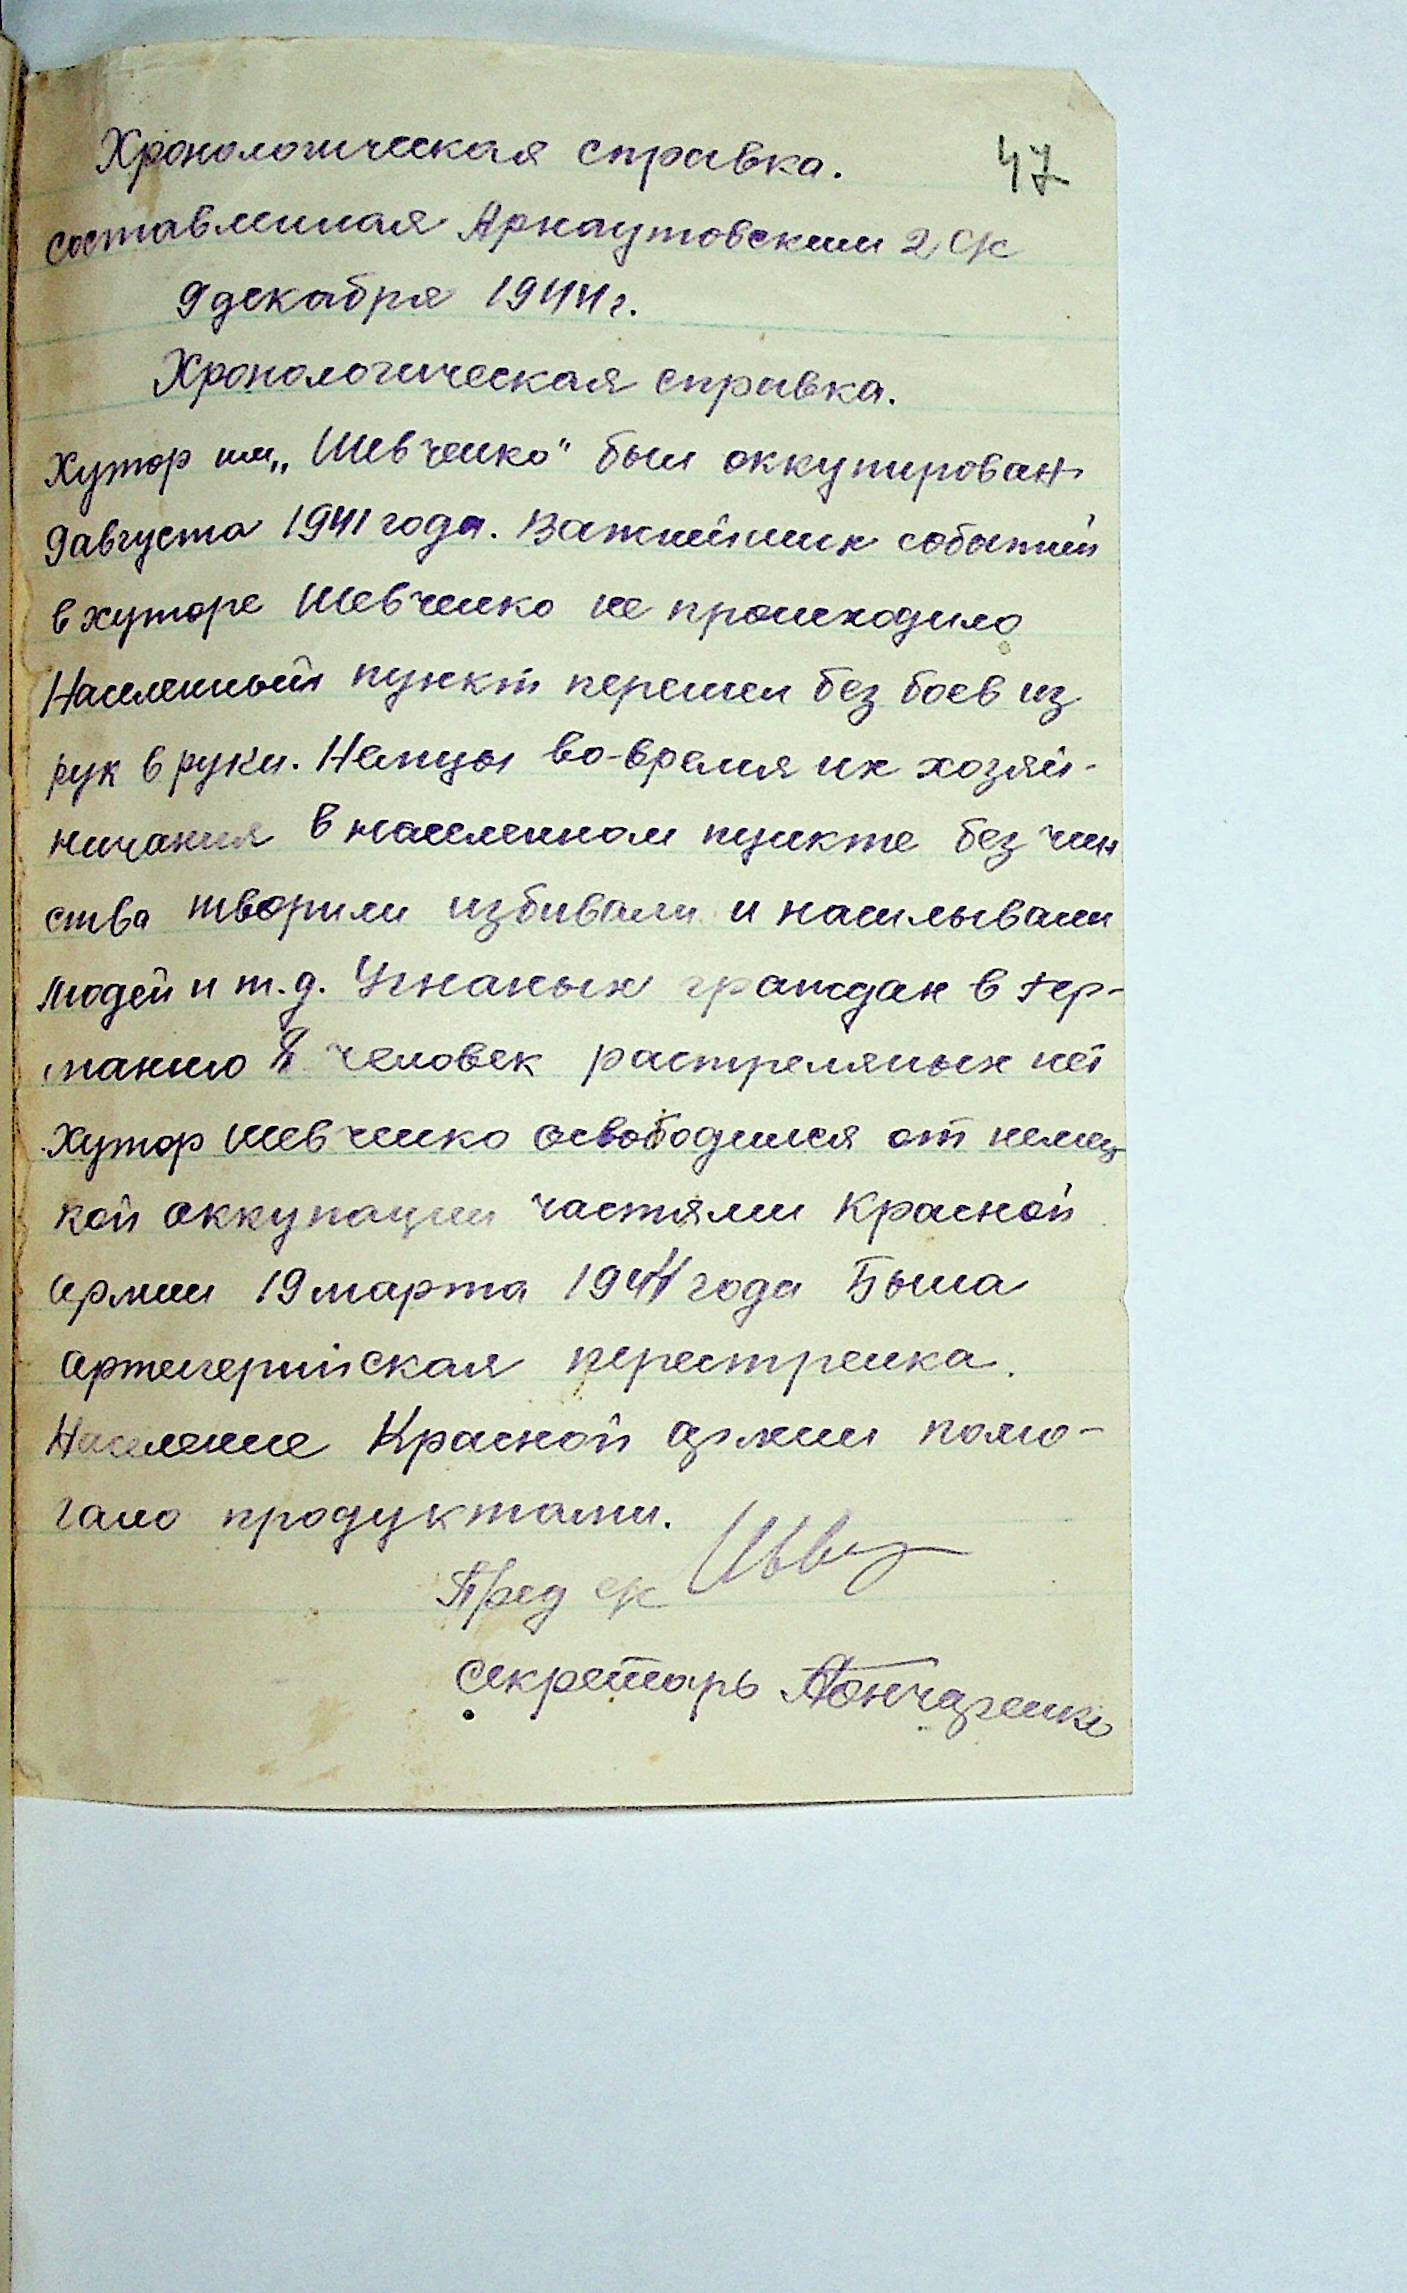 Хронологическая справка.
47
составленная Арнаутовским 2 с/с
9 декабря 1944 г.
Хронологическая справка.
Хутор им „Шевченко" был оккупирован
9 августа 1941 года. Важнейших событий
в хуторе Шевченко не происходило
Населенный пункт перешел без боев из
рук в руки. Немцы во-время их хозяй-
ничания в населенном пункте без чин
ства творили избивали и насиловали
людей и т.д. Угнаных граждан в Гер-
манию 8 человек растреляных нет
Хутор Шевченко освободился от немец
кой оккупации частями Красной
армии 19 марта 1944 года Была
артилерийская перестрелка.
Население Красной армии помо-
гало продуктами.
Пред с/с
Секретарь Гончаренко